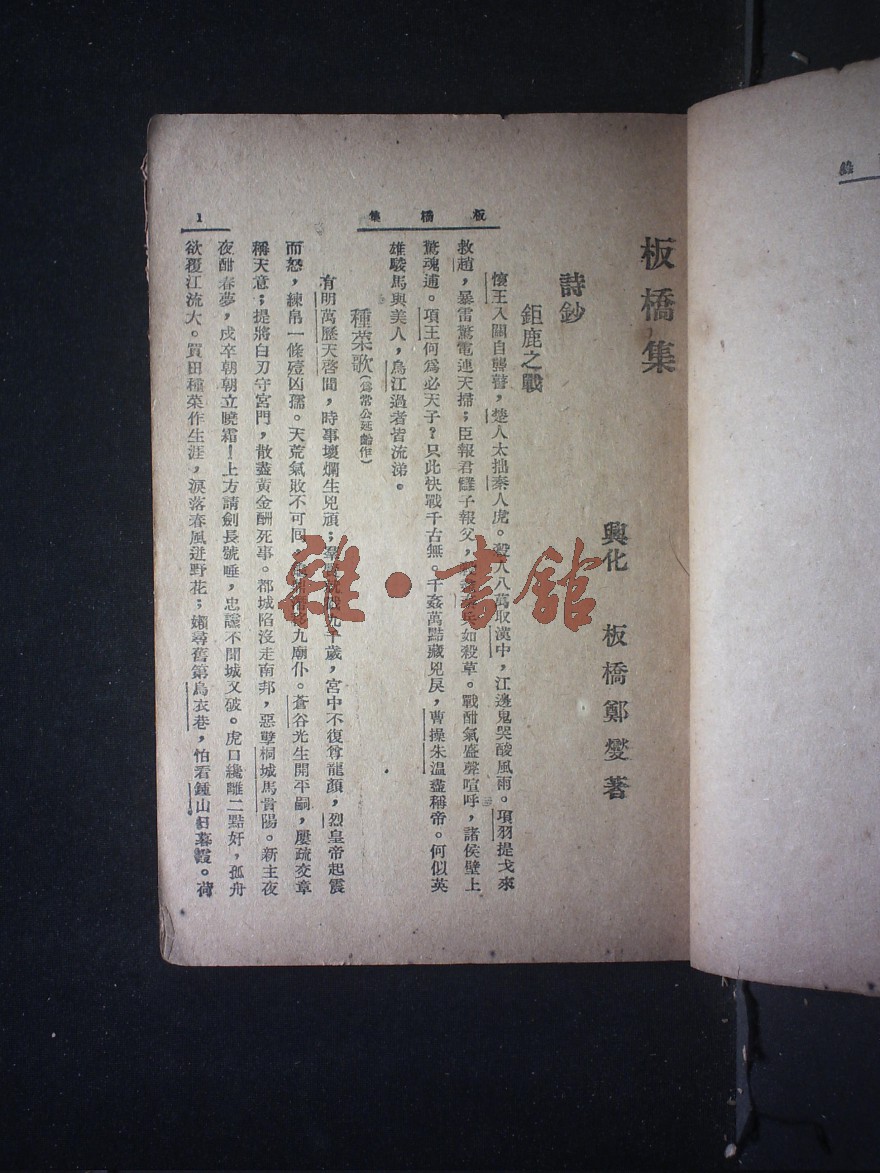 板橋集
興化　板橋鄭燮著
詩鈔
鉅鹿之戰
懷王入關自聾瞽，楚人太拙秦人虎。殺人八萬取漢中，江邊鬼哭酸風雨。項羽提戈來
救趙，暴雷驚電連天掃；臣報君讎子報父，如殺草。戰酣氣盛聲喧呼，諸侯壁上
驚魂逋。項王何爲必天子？只此快戰千古無。千姦萬黠藏兇戾，曹操朱溫盡稱帝。何似英
雄駿馬與美人，烏江過者皆流涕。
種菜歌（爲常公延齡作）
有明萬歷天啓間，時事壞爛生兇頑；千歲，宮中不復尊龍顏，烈皇帝起震
而怒，練帛一條殪凶孺。天荒氣敗不可回，九廟仆。蒼谷光生開平嗣，屢疏交章
稱天意；提將白刃守宮門，散盡黃金酬死事。都城陷沒走南邦，惡孽桐城馬貴陽。新主夜
夜酣春夢，戍卒朝朝立曉霜！上方請劍長號唾，忠讜不聞城又破。虎口纔離二點好，孤舟
欲覆江流大。買田種菜作生涯，淚落春風迸野花；嬾尋舊第烏衣巷，怕看鍾山日暮霞。荷
板橋集
1
雜·書館